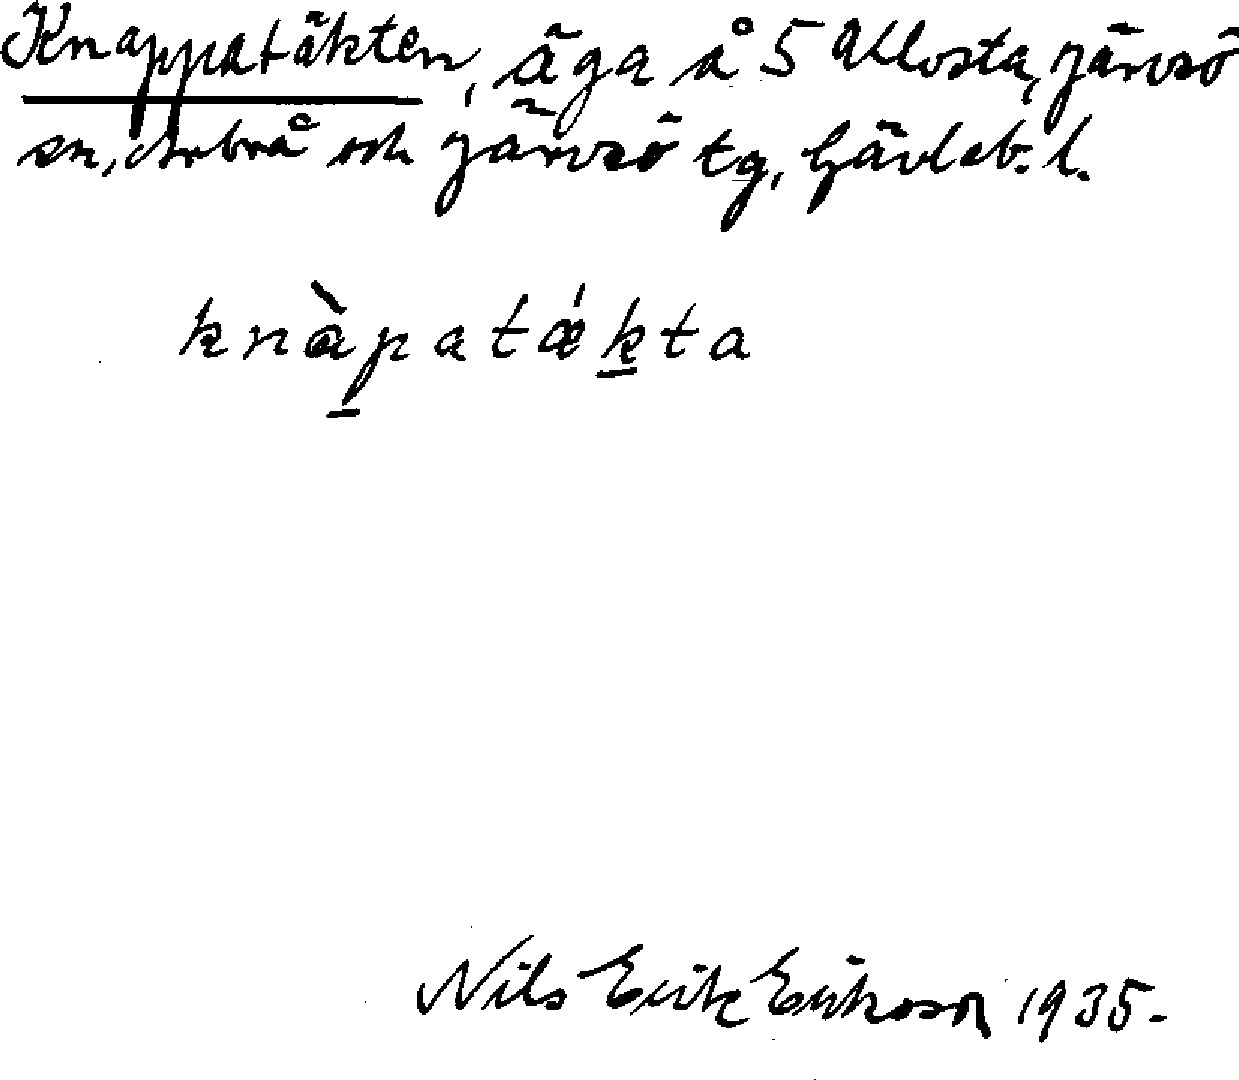 Knappatäkten, äga å 5 Ullosta, Järvsö
sn, Arbrå och Järvsö tg, Gävleb. l.
knàpatǽkta
Nils Erik Eriksson 1935-